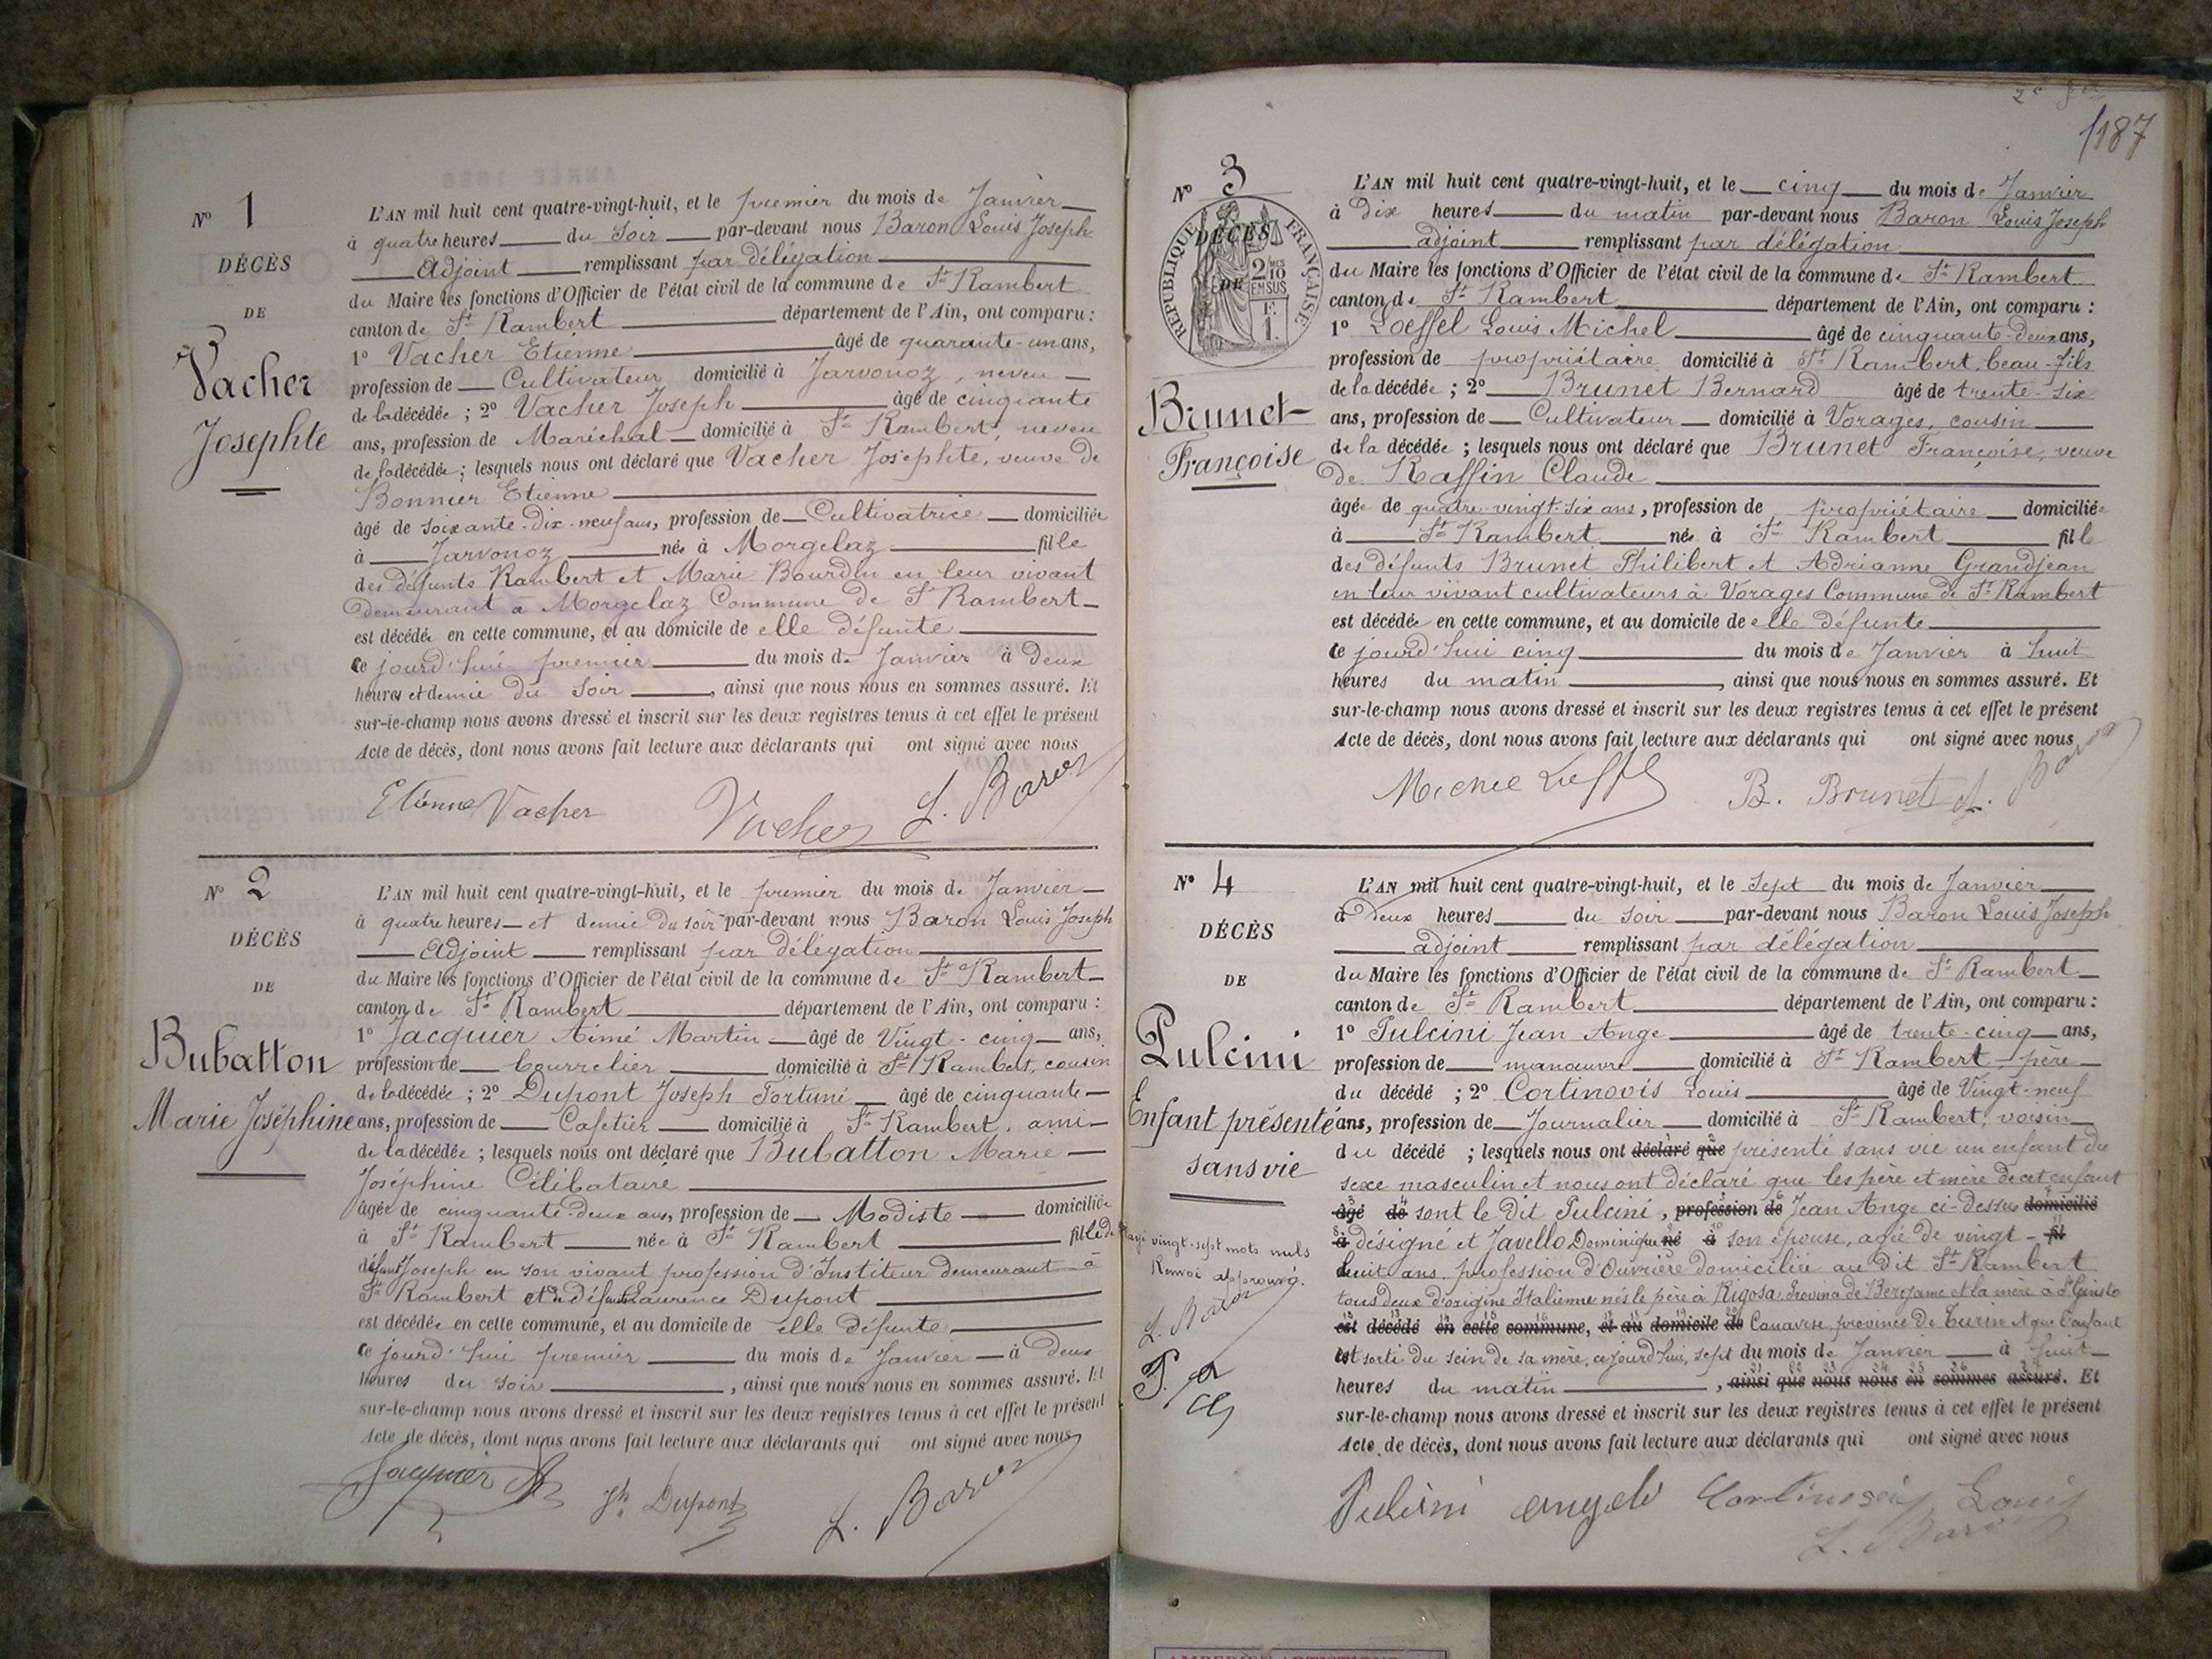 Nº 1
DÉCÈS
DE
Vacher
Josephte
L'AN mil huit cent quatre-vingt-huit, et le premier du mois de Janvier
à quatre heures du Soir par-devant nous Baron Louis Joseph
Adjoint remplissant par délégation
du Maire les fonctions d'Officier de l'état civil de la commune de St Rambert
canton de St Rambert département de l'Ain, ont comparu :
1º Vacher Etienne âgé de quarante-un ans,
profession de Cultivateur domicilié à Javornoz, neveu
de la décédée ; 2º Vacher Joseph âgé de cinquante
ans, profession de Maréchal domicilié à St Rambert, neveu
de la décédée ; lesquels nous ont déclaré que Vacher Josephte, veuve de
Bonnier Etienne
âgé de soixante-dix-neuf ans, profession de Cultivatrice domiciliée
à Jarvonoz née à Morgelaz fille
des défunts Rambert et Marie Bourdin en leur vivant
demeurant à Morgelaz Commune de St Rambert
est décédée en cette commune, et au domicile de elle défunte
ce jourd'hui premier du mois de Janvier à deux
heures et demie du soir, ainsi que nous nous en sommes assuré. Et
sur-le-champ nous avons dressé et inscrit sur les deux registres tenus à cet effet le présent
Acte de décès, dont nous avons fait lecture aux déclarants qui ont signé avec nous
Etienne Vacher Vacher L. Baron
Nº 2
DÉCÈS
DE
Bubatton
Marie Joséphine
L'AN mil huit cent quatre-vingt-huit, et le premier du mois de Janvier
à quatre heures et demie du soir par-devant nous Baron Louis Joseph
Adjoint remplissant par délégation
du Maire les fonctions d'Officier de l'état civil de la commune de St Rambert
canton de St Rambert département de l'Ain, ont comparu :
1º Jacquier Aimé Martin âgé de Vingt-cinq ans,
profession de bourrelier domicilié à St Rambert, cousin
de la décédée ; 2º Dupont Joseph Fortuné âgé de cinquante
ans, profession de Cafetier domicilié à St Rambert, ami
de la décédée ; lesquels nous ont déclaré que Bubatton Marie
Joséphine Célibataire
âgée de cinquante-deux ans, profession de Modiste domiciliée
à St Rambert née à St Rambert fille de
défunt Joseph en son vivant profession d'Institeur demeurant à
St Rambert et de défunte Laurence Dupont
est décédée en cette commune, et au domicile de elle défunte
ce jourd'hui premier du mois de Janvier à deux
heures du soir, ainsi que nous nous en sommes assuré. Et
sur-le-champ nous avons dressé et inscrit sur les deux registres tenus à cet effet le présent
Acte de décès, dont nous avons fait lecture aux déclarants qui ont signé avec nous
Jacquier Jh Dupont L. Baron
187
Nº 3
DÉCÈS
DE
RÉPUBLIQUE FRANÇAISE
2/10 EM SUS
F. 1.
Brunet
Françoise
L'AN mil huit cent quatre-vingt-huit, et le cinq du mois de Janvier
à Dix heures du matin par-devant nous Baron Louis Joseph
adjoint remplissant par délégation
du Maire les fonctions d'Officier de l'état civil de la commune de St Rambert
canton de St Rambert département de l'Ain, ont comparu :
1º Loeffel Louis Michel âgé de cinquante-deux ans,
profession de propriétaire domicilié à St Rambert, beau-fils
de la décédée ; 2º Brunet Bernard âgé de trente-six
ans, profession de Cultivateur domicilié à Vorages, cousin
de la décédée ; lesquels nous ont déclaré que Brunet Françoise, veuve
de Raffin Claude
âgée de quatre-vingt-six ans, profession de propriétaire domiciliée
à St Rambert née à St Rambert fille
des défunts Brunet Philibert et Adrianne Grandjean
en leur vivant cultivateurs à Vorages Commune de St Rambert
est décédée en cette commune, et au domicile de elle défunte
ce jourd'hui cinq du mois de Janvier à huit
heures du matin, ainsi que nous nous en sommes assuré. Et
sur-le-champ nous avons dressé et inscrit sur les deux registres tenus à cet effet le présent
Acte de décès, dont nous avons fait lecture aux déclarants qui ont signé avec nous
B. Brunet L. Baron
Nº 4
DÉCÈS
DE
Pulcini
Enfant présenté
sans vie
L'AN mil huit cent quatre-vingt-huit, et le sept du mois de Janvier
à Deux heures du soir par-devant nous Baron Louis Joseph
adjoint remplissant par délégation
du Maire les fonctions d'Officier de l'état civil de la commune de St Rambert
canton de St Rambert département de l'Ain, ont comparu :
1º Pulcini Jean Ange âgé de trente-cinq ans,
profession de manœuvre domicilié à St Rambert, père
du décédé ; 2º Cortinovis Louis âgé de Vingt-neuf
ans, profession de Journalier domicilié à St Rambert, voisin
du décédé ; lesquels nous ont déclaré que présenté sans vie un enfant du
sexe masculin et nous ont déclaré que les père et mère de cet enfant
âgé de sont le dit Pulcini, profession de Jean Ange ci-dessus domicilié
à désigné et Javello Dominique né à son épouse, agée de vingt-fil
huit ans, profession d'Ouvrière domiciliée au dit St Rambert
tous deux d'origine Italienne nés le père à Rigosa, Province de Bergame et la mère à St Giusto
est décédé en cette commune, et au domicile de Canavese, province de Turin et que l'enfant
est sorti du sein de sa mère, ce jourd'hui, sept du mois de Janvier à huit
heures du matin, ainsi que nous nous en sommes assuré. Et
sur-le-champ nous avons dressé et inscrit sur les deux registres tenus à cet effet le présent
Acte de décès, dont nous avons fait lecture aux déclarants qui ont signé avec nous
Rayé vingt-sept mots nuls
Renvoi approuvé.
L. Baron
P. a
CL
Pulcini angelo Cortinovis Louis
L. Baron